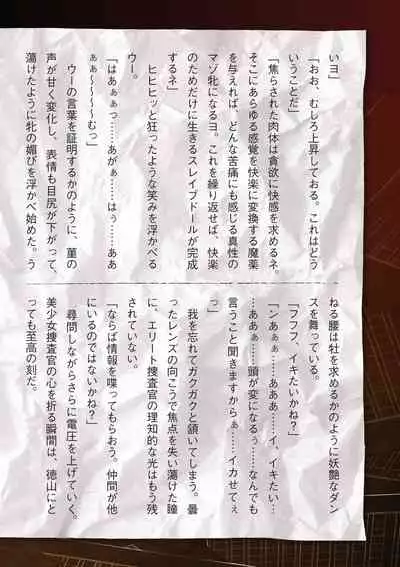 いヨ」
「おお、むしろ上昇しておる。これはどう
いうことだ」
「焦らされた肉体は貪欲に快感を求めるネ。
そこにあらゆる感覚を快楽に変換する魔薬
を与えれば、どんな苦痛にも感じる真性の
マゾ牝になるヨ。これを繰り返せば、快楽
のためだけに生きるスレイブドールが完成
するネ」
ヒヒヒッと狂ったような笑みを浮かべる
ウー。
「はあぁぁっ……あがぁ……はぅ……ああ
ぁぁ〜〜〜〜むっ」
ウーの言葉を証明するかのように、菫の
声が甘く変化し、表情も目尻が下がって、
蕩けたように牝の媚びを浮かべ始めた。う
ねる腰は牡を求めるかのように妖艶なダン
スを舞っている。
「フフフ、イキたいかね？」
「ンあぁぁ……あああ……イ、イキたい…
…ああぁ……頭が変になるぅ……なんでも
言うこと聞きますからぁ……イカせてぇ
っ」
我を忘れてガクガクと頷いてしまう。曇
ったレンズの向こうで焦点を失い蕩けた瞳
に、エリート捜査官の理知的な光はもう残
されていない。
「ならば情報を喋ってもらおう。仲間が他
にいるのではないかね？」
尋問しながらさらに電圧を上げていく。
美少女捜査官の心を折る瞬間は、徳山にと
っても至高の刻だ。